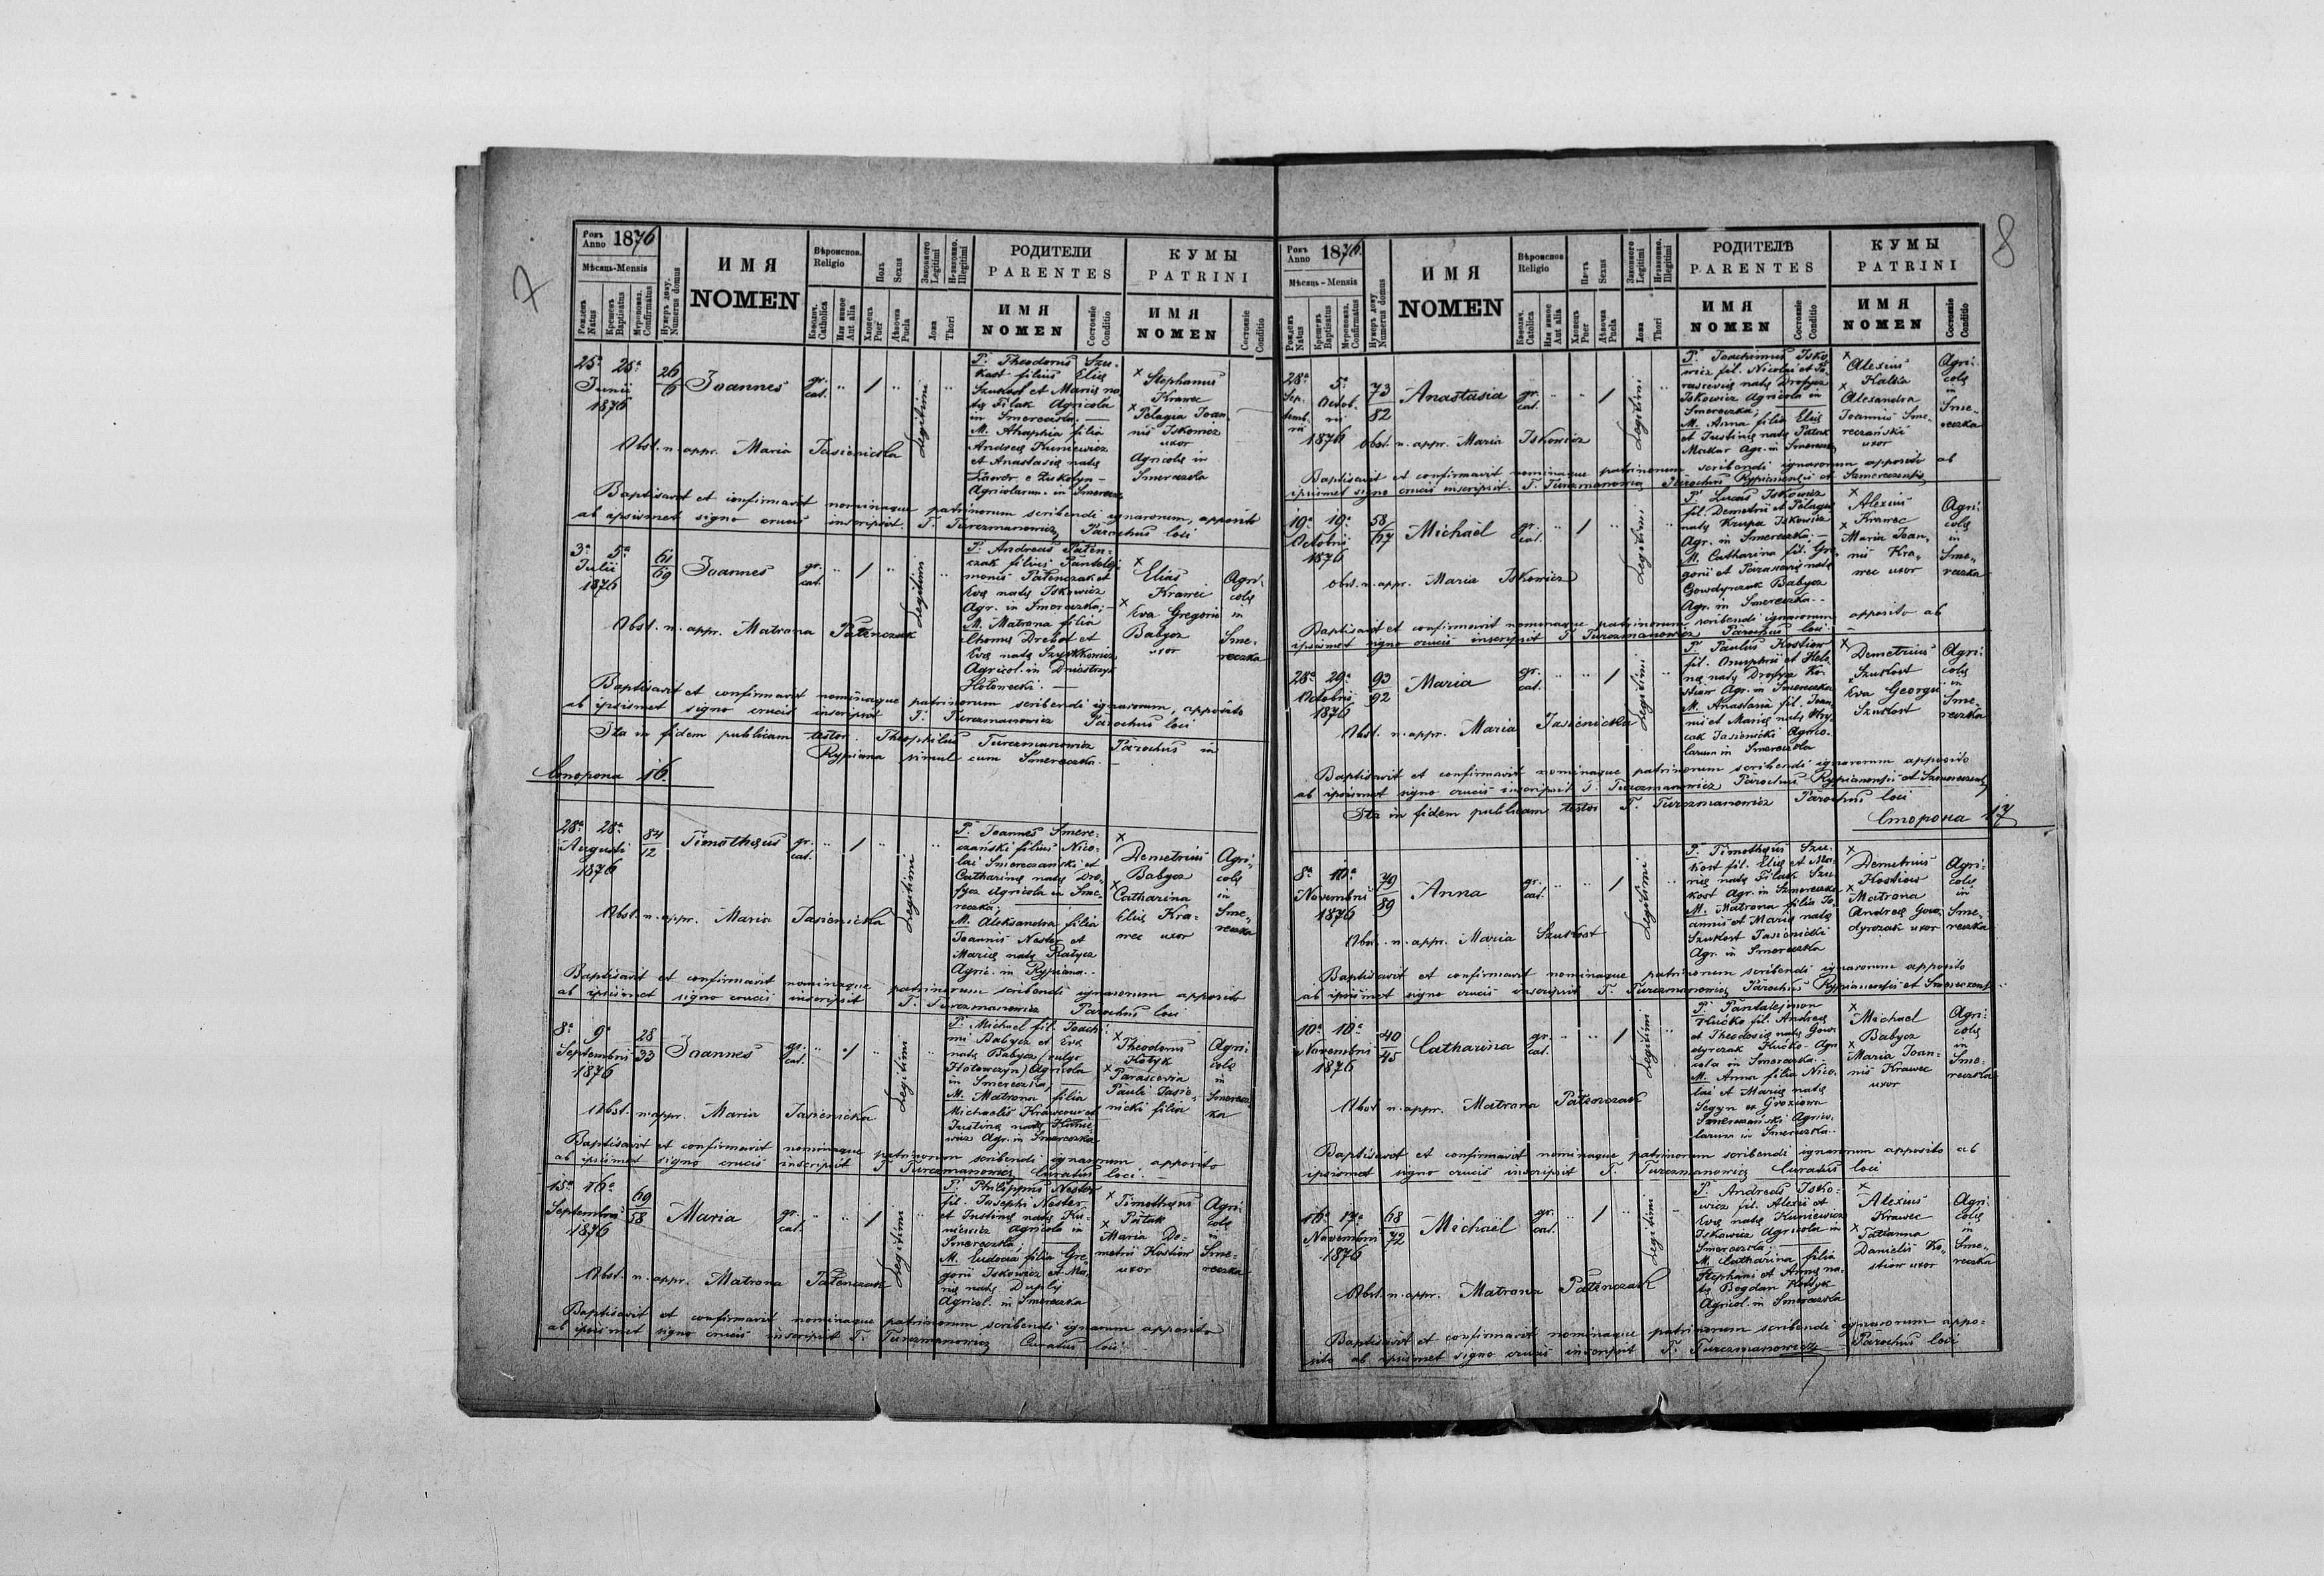 7
Рокъ Anno 1876
Мѣсяць-Mensis
Рожденъ Natus
Крещенъ Baptisatus
Мѵропомаз. Confirmatus
Нумеръ дому. Numerus domus
ИМЯ
NOMEN
Вѣроиспов. Religio
Католич. Catholica
Или иное Aut alia
Полъ Sexus
Хлопецъ Puer
Дѣвочка Puela
Законного Legitimi
Незаконно. Illegitimi
Ложа Thori
РОДИТЕЛИ
PARENTES
ИМЯ
NOMEN
Состояніе Conditio
КУМЫ
PATRINI
ИМЯ
NOMEN
Состояніе Conditio
25ª 25ª
Junii
1876
26
6
Joannes
gr. cat.
Legitimi
P. Theodorus Szu-
kost filius Elię
Szukost et Marię na-
tę Filak Agricola
in Smereczka. —
M. Ahaphia filia
Andreę Kuniewicz
et Anastasię natę
Agricolarum in Smerecz
× Stephanus
Krawec
× Pelagia Joan-
nis Iskowicz
uxor
Agricolę in
Smereczka
Obst. n. appr. Maria Jasienicka
Baptisavit et confirmavit nominaque patrinorum scribendi ignarorum, apposito
ab ipsismet signo crucis inscripsit. T. Turczmanowicz Parochus loci
3ª 5ª
Julii
1876
61
69
Joannes
gr. cat.
Legitimi
P. Andreas Paten-
czak filius Pantelej-
monis Patenczak et
Evę natę Iskowicz
Agr. in Smereczka; —
M. Matrona filia
Thomę Drebot et
Evę natę
Agricol. in Dniestrzyk
Hołowecki. —
× Elias
Krawec
× Eva Gregorii
Babycz
uxor
Agri-
colę
in
Sme-
reczka
Obst. n. appr. Matrona Patenczak
Baptisavit et confirmavit nominaque patrinorum scribendi ignarorum, apposito
ab ipsismet signo crucis inscripsit T. Turczmanowicz Parochus loci
Ita in fidem publicam testor. Theophilus Turczmanowicz Parochus in
Rypiana simul cum Smereczka. —
Сторона 16.
28ª 28ª
Augusti
1876
84
12
Timothęus
gr. cat.
Legitimi
P. Joannes Smere-
czański filius Nico-
lai Smereczański et
Catharinę natę Dro-
fycz Agricola in Sme-
reczka;
M. Aleksandra filia
Joannis Nester et
Marię natę Ratycz
Agric. in Rypiana..
× Demetrius
Babycz
× Catharina
Elię Kra-
wec uxor
Agri-
colę
in
Sme-
reczka
Obst. n. appr. Maria Jasienicka
Baptisavit et confirmavit nominaque patrinorum scribendi ignarorum apposito
ab ipsismet signo crucis inscripsit T. Turczmanowicz Parochus loci
8ª 9ª
Septembris
1876
28
33
Joannes
gr. cat.
Legitimi
P. Michael fil. Joachi-
mi Babycz et Evę
natę Babycz (vulgo
Hołowczyn) Agricola
in Smereczka; —
M. Matrona filia
Michaelis Krawcow et
Justinę natę Kunie-
wicz Agr. in Smereczka
× Theodorus
Kotyk
× Parascevia
Pauli Jasie-
nicki filia
Agri-
colę
in
Smerecz-
ka
Obst. n. appr. Maria Jasienicka
Baptisavit et confirmavit nominaque patrinorum scribendi ignarorum apposito
ab ipsismet signo crucis inscripsit T. Turczmanowicz Curatus loci. —
15ª 16ª
Septembris
1876
69
58
Maria
gr. cat.
Legitimi
P. Philippus Nester
fil. Josephi Nester
et Justinę natę Ku-
niewicz Agricola in
Smereczka;
M. Eudocia filia Gre-
gorii Iskowicz et Ma-
rię natę Duplij
Agricol. in Smereczka
× Timotheus
Pitak
× Maria De-
metrii Kostiow
uxor
Agri-
colę
in
Sme-
reczka
Obst. n. appr. Matrona Patenczak
Baptisavit et confirmavit nominaque patrinorum scribendi ignarum apposito
ab ipsismet signo crucis inscripsit T. Turczmanowicz Curatus loci
8
Рокъ Anno 1876.
Мѣсяць-Mensis
Рожденъ Natus
Крещенъ Baptisatus
Мѵропомаз. Confirmatus
Нумеръ дому Numerus domus
ИМЯ
NOMEN
Вѣроиспов. Religio
Католич. Catolica
Или иное Aut alia
Sexus
Хлопецъ Puer
Дѣвочка Puela
Законного Legitimi
Незаконно. Illegitimi
Ложа Thori
РОДИТЕЛѢ
PARENTES
ИМЯ
NOMEN
Состояніе Conditio
КУМЫ
PATRINI
ИМЯ
NOMEN
Состояніе Conditio
28ª 5ª
Sep- Octob-
temb- ris
ris
1876
73
82
Anastasia
gr. cat.
Legitimi
P. Joachimus Isko-
wicz fil. Nicolai et Pa-
rascevię natę Drofycz
Iskowicz Agricola in
Smereczka;
M. Anna filia Elię
et Justinę natę Patak
Makar Agr. in Smereczka
× Alexius
× Alexandra
Joannis Sme-
reczański
uxor
Agri-
colę
in
Sme-
reczka
Obst. n. appr. Maria Iskowicz
Baptisavit et confirmavit nominaque patrinorum scribendi ignarorum apposito ab
ipsismet signo crucis inscripsit. T. Turczmanowicz Parochus Rypianensis et Smereczensis
19ª 19ª
Octobris
1876
58
67
Michaël
gr. cat.
Legitimi
P. Lucas Iskowicz
fil. Demetrii et Pelagię
natę Krupa Iskowicz
Agr. in Smereczka; —
M. Catharina fil. Gre-
gorii et Parascevię natę
Gowdyrczak Babycz
Agr. in Smereczka..
× Alexius
Krawec
× Maria Joan-
nis Kra-
wec uxor
Agri-
colę
in
Sme-
reczka
Obst. n. appr. Maria Iskowicz
Baptisavit et confirmavit nominaque patrinorum scribendi ignarorum apposito ab
ipsismet signo crucis inscripsit T. Turczmanowicz Parochus loci —
28ª 29ª
Octobris
1876
93
92
Maria
gr. cat.
Legitimi
P. Paulus Kostiow
fil. Onuphrii et Hele-
nę natę Drofycz Ko-
stiow Agr. in Smereczka
M. Anastasia fil. Joan-
nis et Marię natę Hry-
cak Jasienicki Agrico-
larum in Smereczka
× Demetrius
Szukost
× Eva Georgii
Szukost
Agri-
colę
in
Sme-
reczka
Obst. n. appr. Maria Jasienicka
Baptisavit et confirmavit nominaque patrinorum scribendi ignarorum apposito
ab ipsismet signo crucis inscripsit T. Turczmanowicz Parochus Rypianensis et Smereczensis
Ita in fidem publicam testor T. Turczmanowicz Parochus loci
Сторона 17
8ª 10ª
Novembris
1876
79
89
Anna
gr. cat.
Legitimi
P. Timothęus Szu-
kost fil. Elię et Ma-
rię natę Filak Szu-
kost Agr. in Smereczka
M. Matrona filia Jo-
annis et Marię natę
Szukost Jasienicki
Agr. in Smereczka
× Demetrius
Kostiow
× Matrona
Andreę Gow-
dyrczak uxor
Agri-
colę
in
Sme-
reczka
Obst. n. appr. Maria Szukost
Baptisavit et confirmavit nominaque patrinorum scribendi ignarorum apposito
ab ipsismet signo crucis inscripsit T. Turczmanowicz Parochus Rypianensis et Smereczensis
10ª 10ª
Novembris
1876
40
45
Catharina
gr. cat.
Legitimi
P. Pantalejmon
Klućko fil. Andreę
et Theodosię natę Gow-
dyrczak Klućko Agri-
cola in Smereczka..
M. Anna filia Nico-
lai et Marię natę
Segyn et Groziowa
Smereczański Agrico-
larum in Smereczka..
× Michael
Babycz
× Maria Joan-
nis Krawec
uxor
Agri-
colę
in
Sme-
reczka
Obst. n. appr. Matrona Patenczak
Baptisavit et confirmavit nominaque patrinorum scribendi ignarorum apposito ab
ipsismet signo crucis inscripsit T. Turczmanowicz Curatus loci
16ª 17ª
Novembris
1876
68
72
Michaël
gr. cat.
Legitimi
P. Andreas Isko-
wicz fil. Alexii et
Evę natę Kuniewicz
Iskowicz Agricola in
Smereczka;
M. Catharina filia
Stephani et Annę na-
tę Bogdan Kotyk
Agricol. in Smereczka
× Alexius
Krawec
× Tatianna
Danielis Ko-
stiow uxor
Agri-
colę
in
Sme-
reczka
Obst. n. appr. Matrona Patenczak
Baptisavit et confirmavit nominaque patrinorum scribendi ignarorum appo-
sito ab ipsismet signo crucis inscripsit T. Turczmanowicz Parochus loci